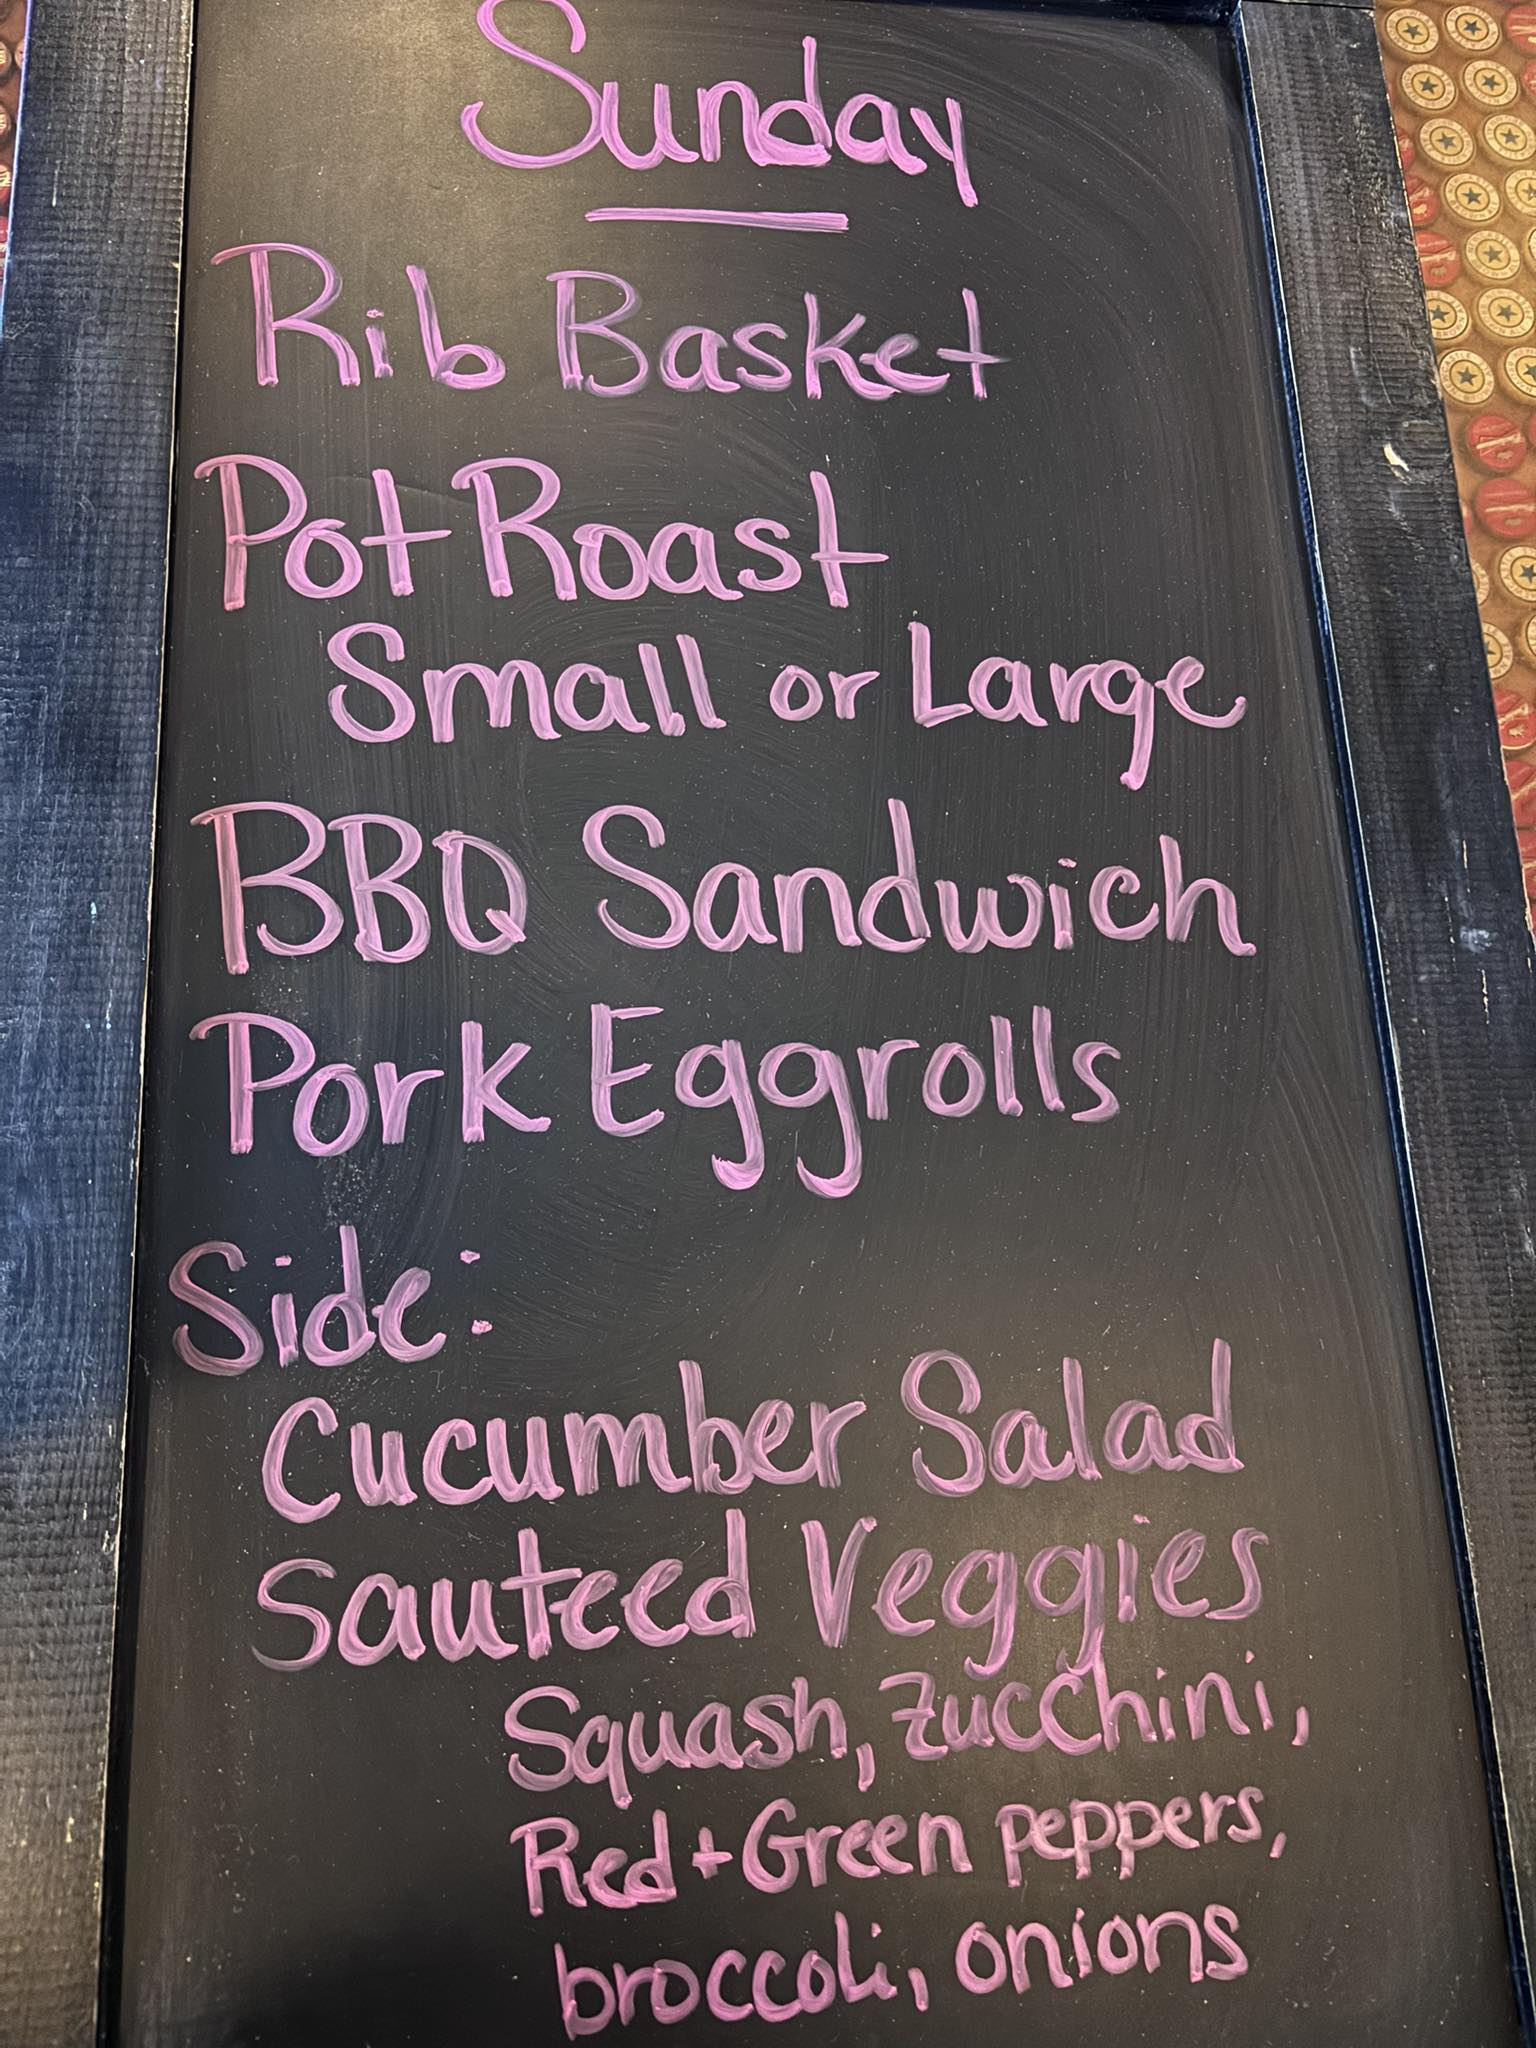 Sunday
Rib Basket
Pot Roast
Small or Large
BBQ Sandwich
Pork Eggrolls
Side:
Cucumber Salad
Sauteed Veggies
Squash, Zucchini,
Red + Green peppers,
broccoli, onions